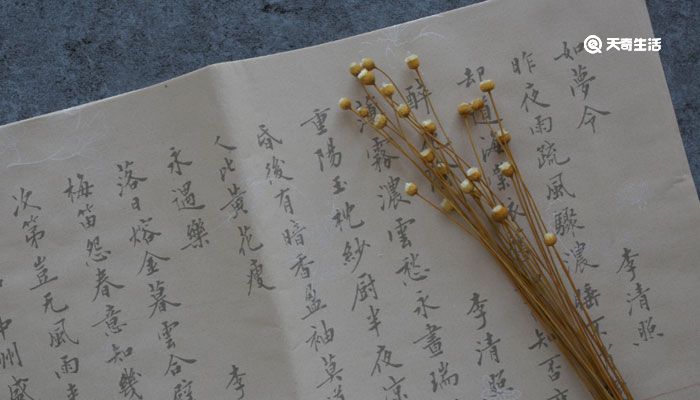 天奇生活
如夢令 李清照
昨夜雨疏風驟濃睡不
却道海棠依 知否
醉 李清照
薄霧濃雲愁永晝瑞
重陽玉枕紗厨半夜涼
昏後有暗香盈袖莫
人比黃花瘦
永遇樂 李
落日熔金暮雲合璧
梅笛怨春意知幾
次第豈无風雨
中州盛